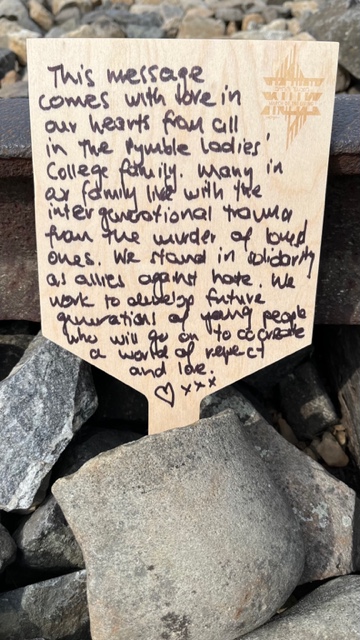 This message
comes with love in
our hearts from all
in the Pymble Ladies'
College family. Many in
our family live with the
intergenerational trauma
from the murder of loved
ones. We stand in solidarity
as allies against hate. We
work to develop future
generations of young people
who will go on to cocreate
a world of respect
and love.
♡ xxx